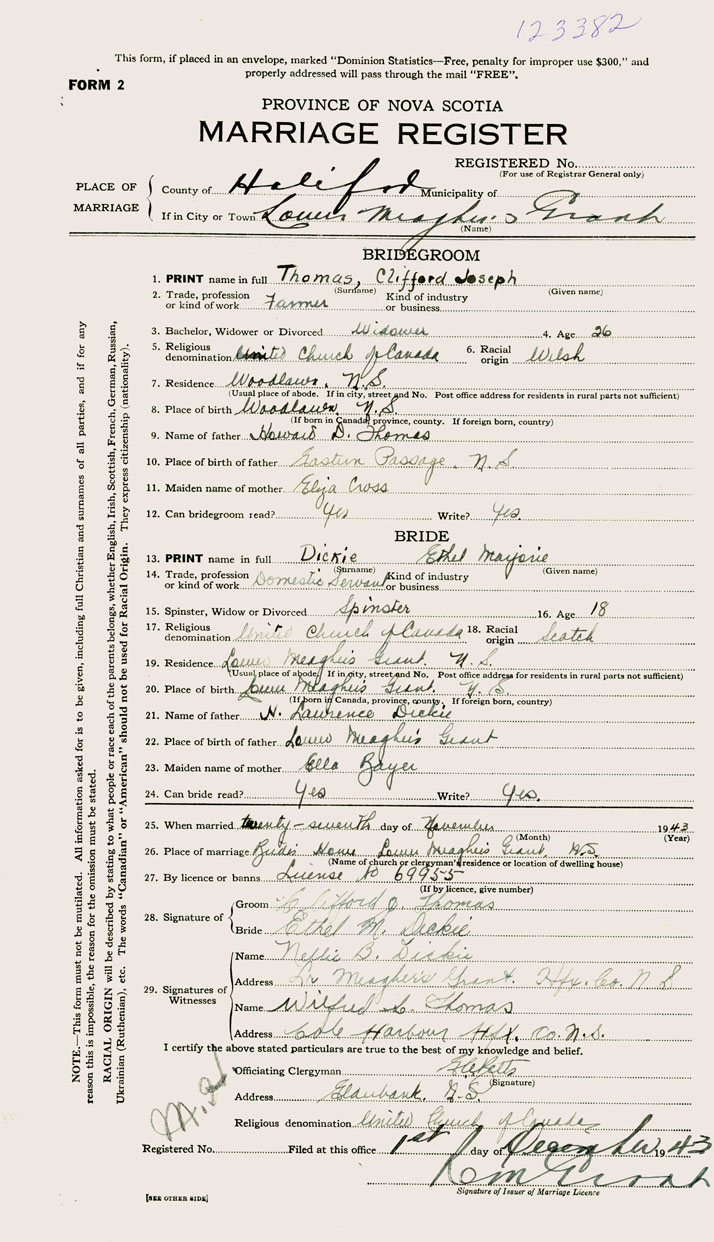 123382
This form, if placed in an envelope, marked "Dominion Statistics—Free, penalty for improper use $300," and
properly addressed will pass through the mail "FREE".
FORM 2
PROVINCE OF NOVA SCOTIA
MARRIAGE REGISTER
REGISTERED No.
(For use of Registrar General only)
PLACE OF MARRIAGE
County of Halifax Municipality of
If in City or Town Lower Meagher's Grant
(Name)
BRIDEGROOM
1. PRINT name in full Thomas, Clifford Joseph
(Surname) (Given name)
2. Trade, profession or kind of work Farmer Kind of industry or business
3. Bachelor, Widower or Divorced Widower 4. Age 26
5. Religious denomination United Church of Canada 6. Racial origin Welsh
7. Residence Woodlawn, N.S.
(Usual place of abode. If in city, street and No. Post office address for residents in rural parts not sufficient)
8. Place of birth Woodlawn, N.S.
(If born in Canada, province, county. If foreign born, country)
9. Name of father Howard D. Thomas
10. Place of birth of father Eastern Passage, N.S
11. Maiden name of mother Eliza Cross
12. Can bridegroom read? Yes Write? Yes.
BRIDE
13. PRINT name in full Dickie Ethel Marjorie
(Surname) (Given name)
14. Trade, profession or kind of work Domestic Servant Kind of industry or business
15. Spinster, Widow or Divorced Spinster 16. Age 18
17. Religious denomination United Church of Canada 18. Racial origin Scotch
19. Residence Lower Meagher's Grant. N.S.
(Usual place of abode. If in city, street and No. Post office address for residents in rural parts not sufficient)
20. Place of birth Lower Meagher's Grant. N.S.
(If born in Canada, province, county. If foreign born, country)
21. Name of father H. Lawrence Dickie
22. Place of birth of father Lower Meagher's Grant
23. Maiden name of mother Ella Bayer
24. Can bride read? Yes Write? Yes.
25. When married twenty-seventh day of November 1943
(Month) (Year)
26. Place of marriage Bride's Home Lower Meagher's Grant, N.S.
(Name of church or clergyman's residence or location of dwelling house)
27. By licence or banns License No 69955
(If by licence, give number)
28. Signature of
Groom Clifford J. Thomas
Bride Ethel M. Dickie
29. Signatures of Witnesses
Name Nellie B. Dickie
Address Lr Meagher's Grant. Hfx. Co. N S
Name Wilfred L. Thomas
Address Cole Harbour Hfx. Co. N.S.
I certify the above stated particulars are true to the best of my knowledge and belief.
Officiating Clergyman
(Signature)
Address Elderbank, N.S.
Religious denomination United Church of Canada
Registered No. Filed at this office 1st day of December 1943
Signature of Issuer of Marriage Licence
[SEE OTHER SIDE]
NOTE.—This form must not be mutilated. All information asked for is to be given, including full Christian and surnames of all parties, and if for any
reason this is impossible, the reason for the omission must be stated.
RACIAL ORIGIN will be described by stating to what people or race each of the parents belongs, whether English, Irish, Scottish, French, German, Russian,
Ukrainian (Ruthenian), etc. The words "Canadian" or "American" should not be used for Racial Origin. They express citizenship (nationality).